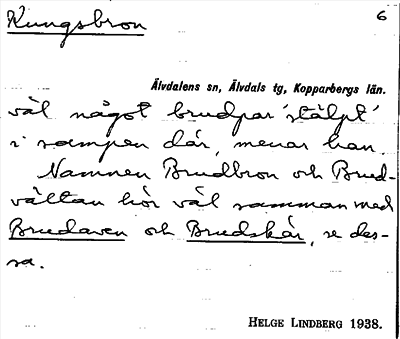 Kungsbron
6
Älvdalens sn, Älvdals tg, Kopparbergs län.
väl något brudpar 'stälpt'
i sampen där, menar han.
Namnen Brudbron och Brud-
vältan hör väl samman med
Brudaven och Brudskär, se des-
sa.
HELGE LINDBERG 1938.